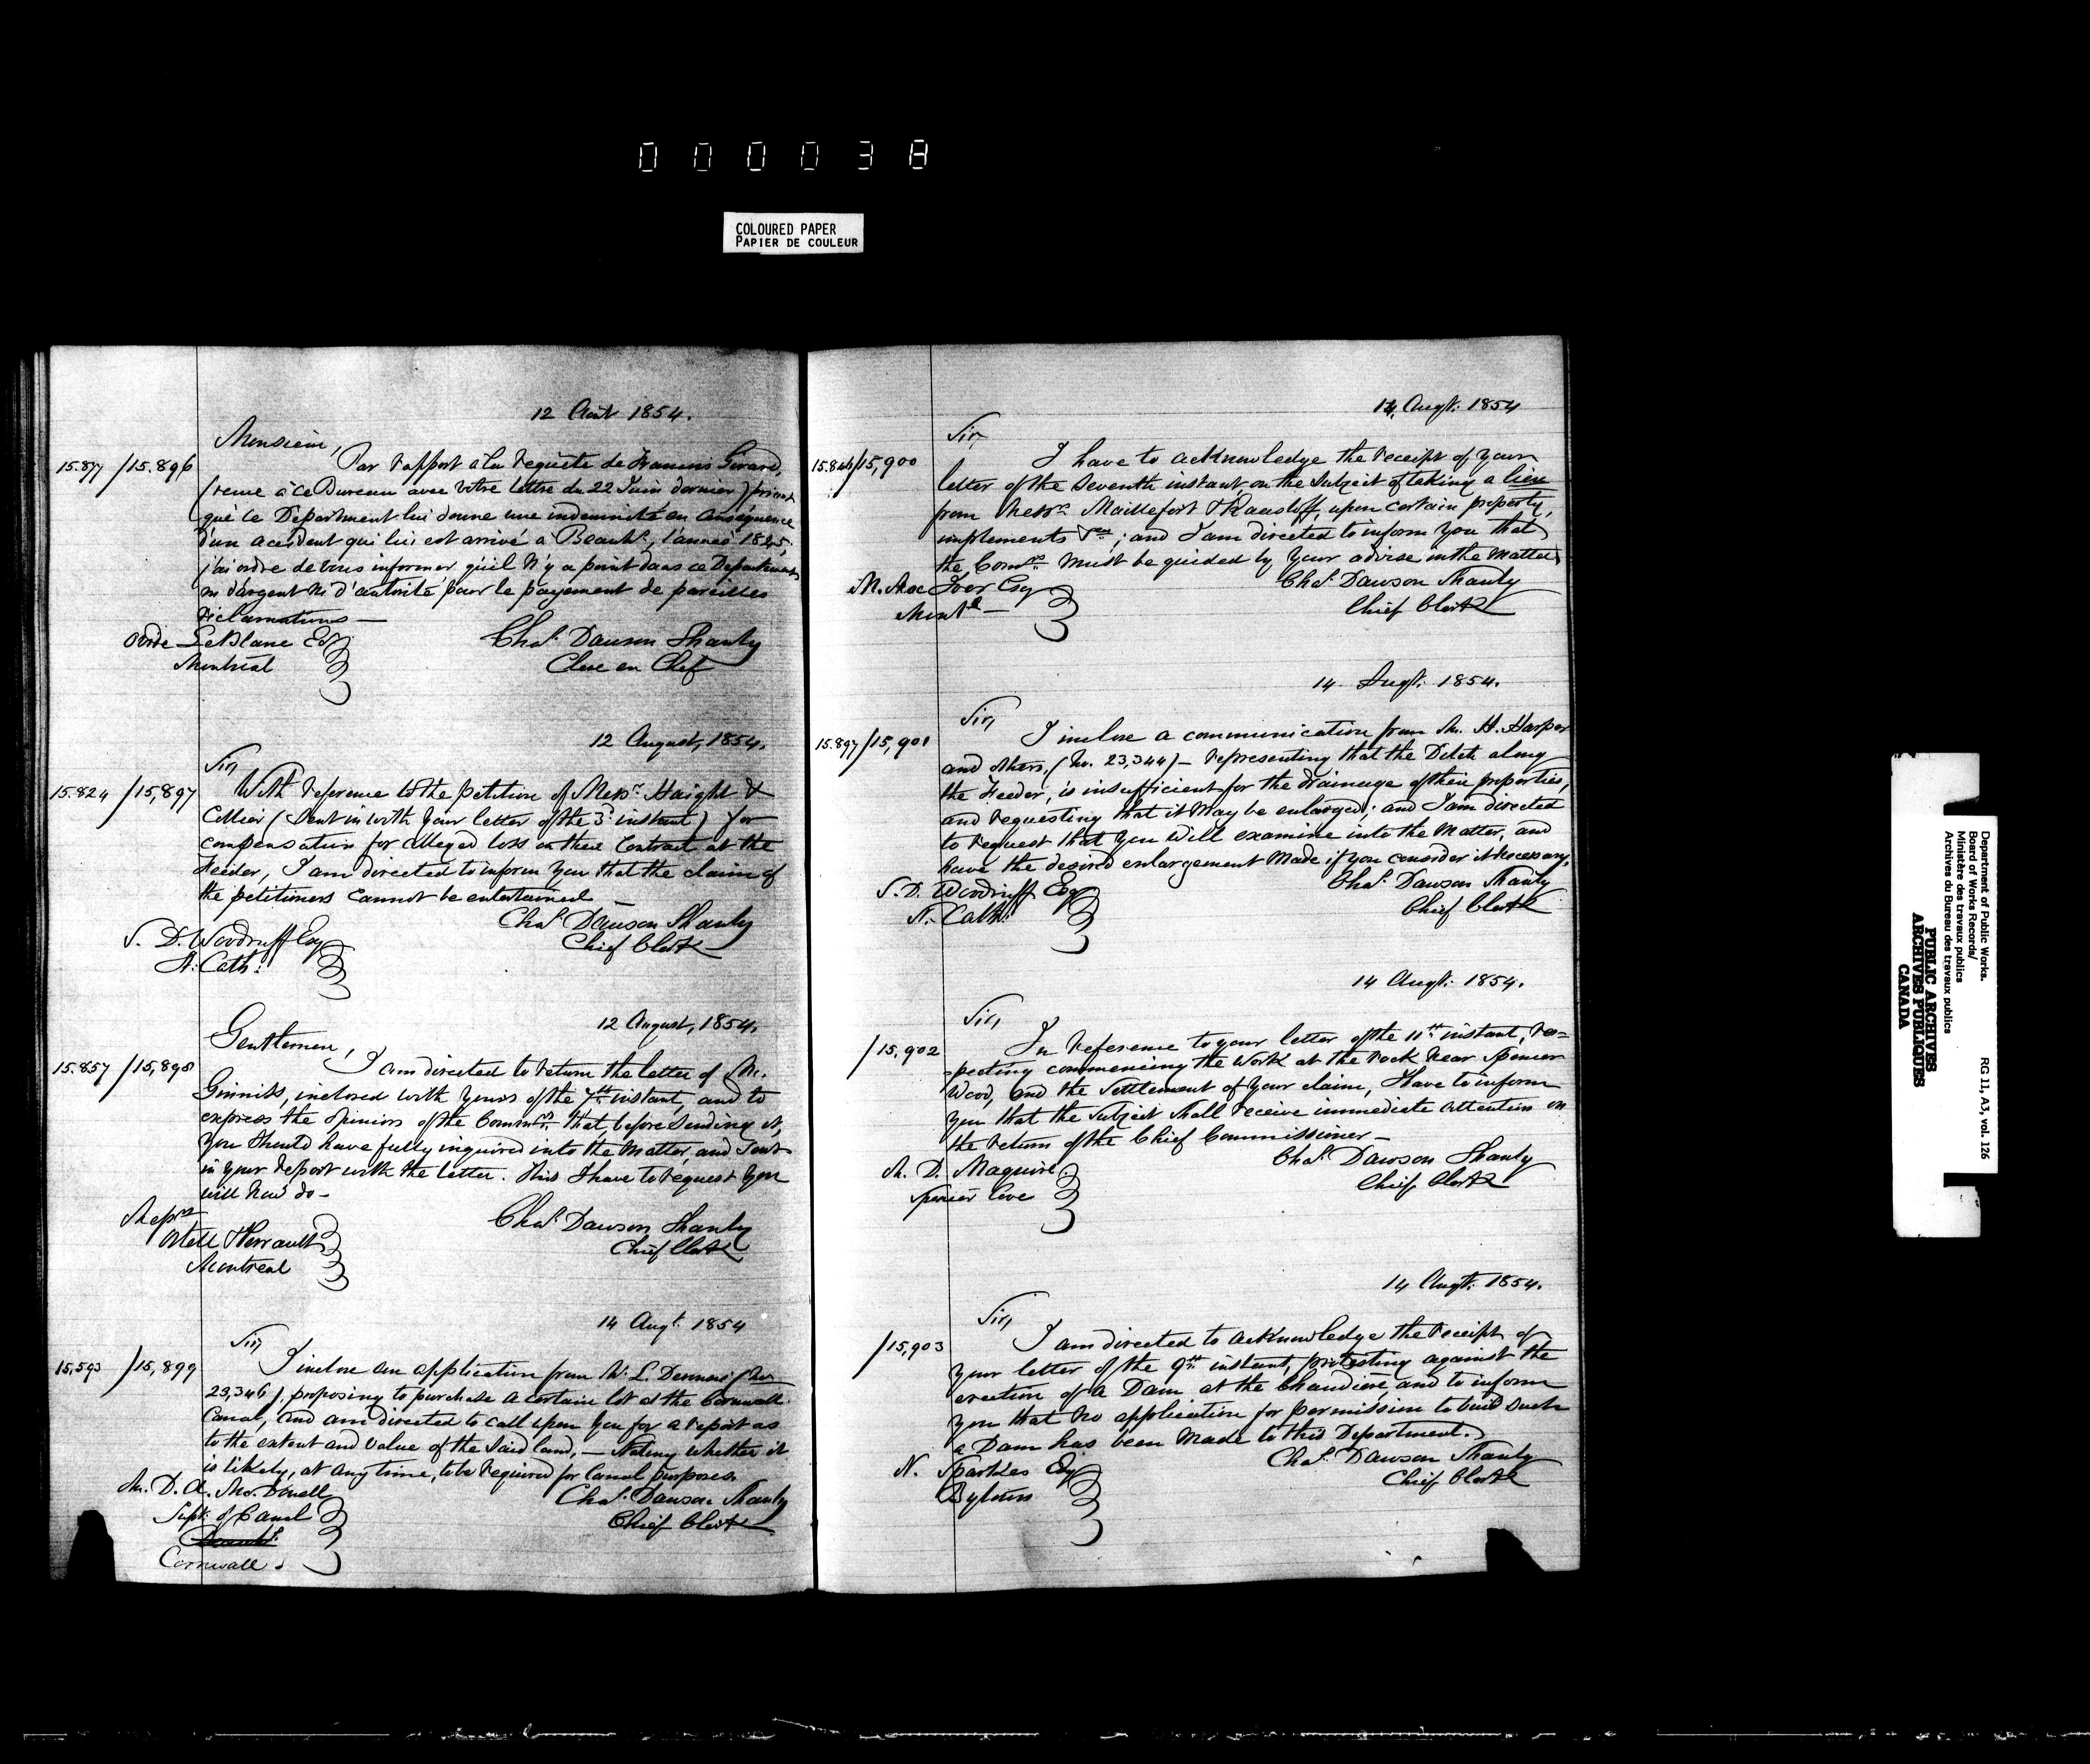 000038
COLOURED PAPER
PAPIER DE COULEUR
12 Août 1854.
Monsieur,
15.877 /15.896
Par rapport à la requête de Francois Girard,
(reçue à ce Bureau avec votre lettre du 22 Juin dernier) priant
que le Department lui donne une indemnité en conséquence
d'un accident qui lui est arrivé à Beauhs, l'année 1845,
j'ai ordre de vous informer qu'il n'y a point dans ce Departement
ni d'argent ni d'autorité pour le payement de pareilles
réclamations —
Ovide LeBlanc Esq
Montréal
Chas. Dawson Shanly
Clerc en Chef
12 August, 1854.
Sir,
15.824 /15,897
With reference to the petition of Messrs. Haight &
Collier (sent in with your letter of the 3d instant) for
compensation for alleged loss on their Contract at the
Feeder, I am directed to inform you that the claim of
the petitioners cannot be entertained —
Chas Dawson Shanly
Chief Clerk
S. D. Woodruff Esq
St. Cath:
12 August, 1854.
Gentlemen,
15.857 /15,898
I am directed to return the letter of Mr.
Ginnils, inclosed with yours of the 7th instant, and to
express the opinions of the Commrs. that before sending it,
you should have fully inquired into the matter, and sent
in your report with the letter. This I have to request you
will now do —
Messrs
Ostell & Perrault
Montreal
Chas. Dawson Shanly
Chief Clerk
14 Augt. 1854
Sir,
15,593 /15,899
I inclose an application from W. L. Dennis (No
23,346), proposing to purchase a certain lot at the Cornwall
Canal, and am directed to call upon you for a report as
to the extent and value of the said land, — Noting whether it
is likely, at any time, to be required for Canal purposes.
Mr. D. A. McDonell
Supt: of Canal
Cornwall.
Chas. Dawson Shanly
Chief Clerk
14 Augt: 1854
Sir,
15.846/15,900
I have to acknowledge the receipt of your
letter of the seventh instant, on the subject of taking a lien
from Messrs. Maillefert & Raasloff, upon certain property,
implements &ca; and I am directed to inform you that
the Comrs. must be guided by your advise in the matter
M. MacIver Esq
Montl —
Chas. Dawson Shanly
Chief Clerk
14 Augt: 1854.
Sir,
15.897/15,901
I inclose a communication from Mr. H. Harper
and others, (No. 23,344) — representing that the Ditch along
the Feeder, is insufficient for the drainage of their properties,
and requesting that it may be enlarged; and I am directed
to request that you will examine into the matter, and
have the desired enlargement made if you consider it necessary.
S. D. Woodruff Esq
St. Cath:
Chas. Dawson Shanly
Chief Clerk
14 Augt: 1854.
Sir,
/15,902
In reference to your letter of the 11th instant, res=
=pecting commencing the work at the rock near Spencer
Wood, and the settlement of your claim, I have to inform
you that the subject shall receive immediate attention on
the return of the Chief Commissioner —
Mr. D. Maguire.
Spencer Cove
Chas. Dawson Shanly
Chief Clerk
14 Augt: 1854.
Sir,
/15,903
I am directed to acknowledge the receipt of
your letter of the 9th instant, protesting against the
erection of a Dam at the Chaudière, and to inform
you that no application for permission to build such
a Dam has been made to this Department.
N. Sparkes Esq
Bytown
Chas. Dawson Shanly
Chief Clerk
Department of Public Works.
Board of Works Records/
Ministère des travaux publics
Archives du Bureau des travaux publics
RG 11, A3, vol. 126
PUBLIC ARCHIVES
ARCHIVES PUBLIQUES
CANADA